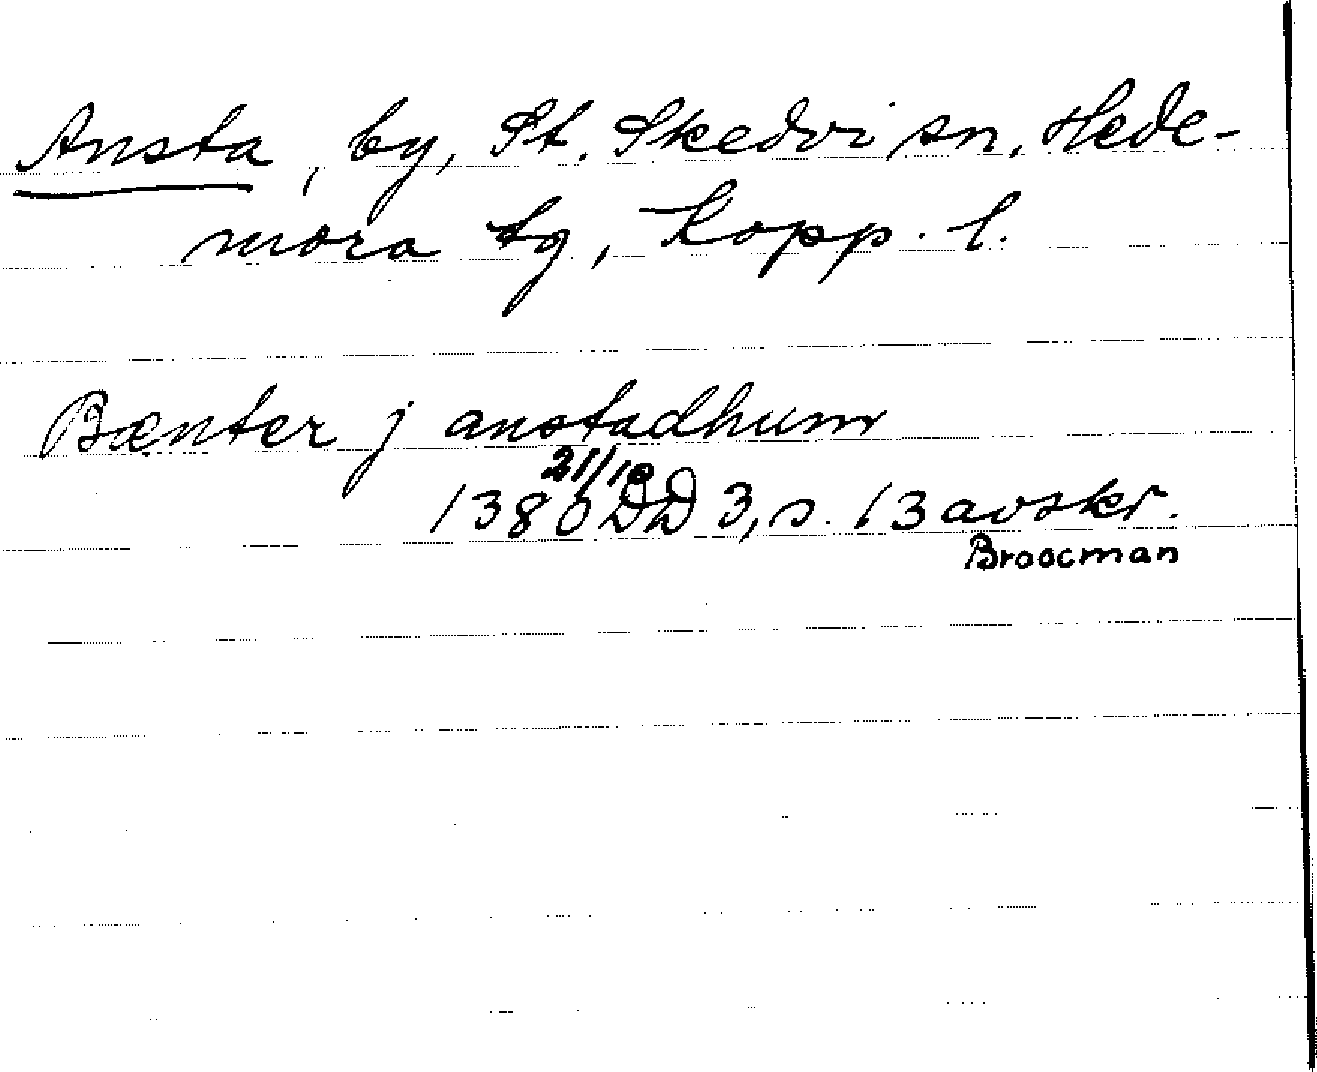 Ansta, by, St. Skedvi sn, Hede-
mora tg, Kopp. l.
Bænter j anstadhum
21/10
1380 DD 3, s. 13 avskr.
Broocman